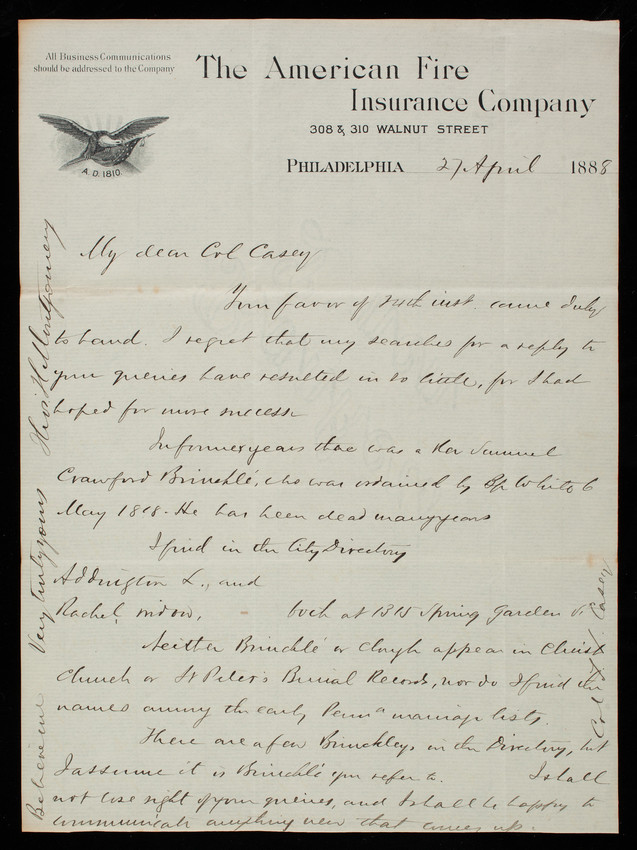 All Business Communications
should be addressed to the Company
The American Fire
Insurance Company
308 & 310 WALNUT STREET
A.D. 1810.
PHILADELPHIA 27 April 1888
My dear Col Casey
Your favor of 24th inst. came duly
to hand. I regret that my searches for a reply to
your queries have resulted in so little, for I had
hoped for more success
In former years there was a Rev Samuel
Crawford Brinchlé, who was ordained by Bp White 6
May 1818. He has been dead many years
I find in the City Directory
Addington L., and
Rachel, widow, both at 1315 Spring Garden St
Neither Brinchlé or Clough appear in Christ
Church or St Peter's Burial Records, nor do I find the
names among the early Penna marriage lists.
There are a few Brinckleys in the Directory, but
I assume it is Brinchlé you refer to. I shall
not lose sight of your queries, and I shall be happy to
communicate anything new that comes up.
Believe me Very truly yours Thos H Montgomery
Col T. L. Casey